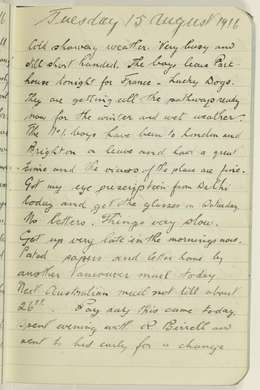 Tuesday 15 August 1916
Cold showery weather. Very busy and
still short handed. The boys leave Park-
house tonight for France - Lucky Dogs.
They are getting all the pathways ready
now for the winter and wet weather.
The No 1 boys have been to London and
Brighton on leave and had a great
time and the views of the place are fine.
Got my eye prescription from Delhi
today and get the glasses on Saturday
No letters. Things very slow.
Get up very late in the mornings now.
Posted papers and letter home by
another Vancouver mail today
Next Australian mail not till about
26th. Pay day this came today.
Spent evening with R Birrell and
went to bed early for a change